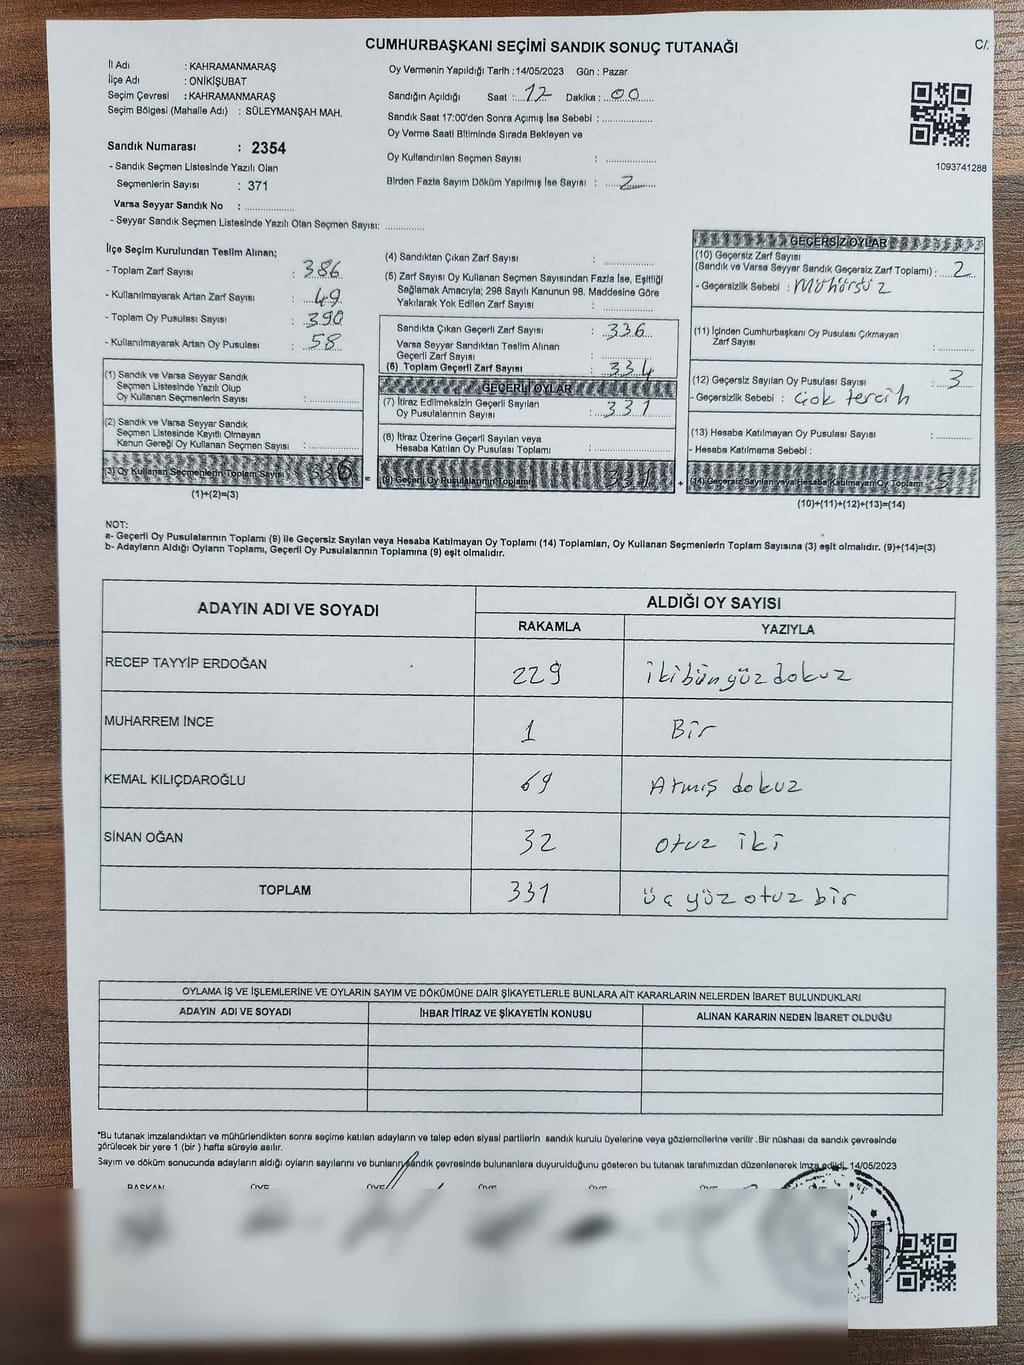 CUMHURBAŞKANI SEÇİMİ SANDIK SONUÇ TUTANAĞI
C/
İl Adı : KAHRAMANMARAŞ
İlçe Adı : ONİKİŞUBAT
Seçim Çevresi : KAHRAMANMARAŞ
Seçim Bölgesi (Mahalle Adı) : SÜLEYMANŞAH MAH.
Sandık Numarası : 2354
- Sandık Seçmen Listesinde Yazılı Olan
Seçmenlerin Sayısı : 371
Varsa Seyyar Sandık No : ..............
- Seyyar Sandık Seçmen Listesinde Yazılı Olan Seçmen Sayısı: ............
Oy Vermenin Yapıldığı Tarih : 14/05/2023 Gün : Pazar
Sandığın Açıldığı Saat : 17 Dakika : 00
Sandık Saat 17:00'den Sonra Açımış İse Sebebi : ..............
Oy Verme Saati Bitiminde Sırada Bekleyen ve
Oy Kullandırılan Seçmen Sayısı : ..............
Birden Fazla Sayım Döküm Yapılmış İse Sayısı : 2
1093741288
İlçe Seçim Kurulundan Teslim Alınan;
- Toplam Zarf Sayısı : 386
- Kullanılmayarak Artan Zarf Sayısı : 49
- Toplam Oy Pusulası Sayısı : 390
- Kullanılmayarak Artan Oy Pusulası : 58
(1) Sandık ve Varsa Seyyar Sandık
Seçmen Listesinde Yazılı Olup
Oy Kullanan Seçmenlerin Sayısı : ..............
(2) Sandık ve Varsa Seyyar Sandık
Seçmen Listesinde Kayıtlı Olmayan
Kanun Gereği Oy Kullanan Seçmen Sayısı : ..............
(3) Oy Kullanan Seçmenlerin Toplam Sayısı 336 =
(1)+(2)=(3)
(4) Sandıktan Çıkan Zarf Sayısı : ..............
(5) Zarf Sayısı Oy Kullanan Seçmen Sayısından Fazla İse, Eşitliği
Sağlamak Amacıyla; 298 Sayılı Kanunun 98. Maddesine Göre
Yakılarak Yok Edilen Zarf Sayısı : ..............
Sandıkta Çıkan Geçerli Zarf Sayısı : 336
Varsa Seyyar Sandıktan Teslim Alınan
Geçerli Zarf Sayısı : ..............
(6) Toplam Geçerli Zarf Sayısı : 334
GEÇERLİ OYLAR
(7) İtiraz Edilmeksizin Geçerli Sayılan
Oy Pusulalarının Sayısı : 331
(8) İtiraz Üzerine Geçerli Sayılan veya
Hesaba Katılan Oy Pusulası Toplamı : ..............
(9) Geçerli Oy Pusulalarının Toplamı 331 +
GEÇERSİZ OYLAR
(10) Geçersiz Zarf Sayısı
(Sandık ve Varsa Seyyar Sandık Geçersiz Zarf Toplamı) : 2
- Geçersizlik Sebebi : Mühürsüz
(11) İçinden Cumhurbaşkanı Oy Pusulası Çıkmayan
Zarf Sayısı : ..............
(12) Geçersiz Sayılan Oy Pusulası Sayısı : 3
- Geçersizlik Sebebi : Çok tercih
(13) Hesaba Katılmayan Oy Pusulası Sayısı : ..............
- Hesaba Katılmama Sebebi :
(14) Geçersiz Sayılan veya Hesaba Katılmayan Oy Toplamı 5
(10)+(11)+(12)+(13)=(14)
NOT:
a- Geçerli Oy Pusulalarının Toplamı (9) ile Geçersiz Sayılan veya Hesaba Katılmayan Oy Toplamı (14) Toplamları, Oy Kullanan Seçmenlerin Toplam Sayısına (3) eşit olmalıdır. (9)+(14)=(3)
b- Adayların Aldığı Oyların Toplamı, Geçerli Oy Pusulalarının Toplamına (9) eşit olmalıdır.
ADAYIN ADI VE SOYADI
ALDIĞI OY SAYISI
RAKAMLA YAZIYLA
RECEP TAYYİP ERDOĞAN 229 ikibünyüzdokuz
MUHARREM İNCE 1 Bir
KEMAL KILIÇDAROĞLU 69 Atmış dokuz
SİNAN OĞAN 32 otuz iki
TOPLAM 331 üç yüz otuz bir
OYLAMA İŞ VE İŞLEMLERİNE VE OYLARIN SAYIM VE DÖKÜMÜNE DAİR ŞİKAYETLERLE BUNLARA AİT KARARLARIN NELERDEN İBARET BULUNDUKLARI
ADAYIN ADI VE SOYADI İHBAR İTİRAZ VE ŞİKAYETİN KONUSU ALINAN KARARIN NEDEN İBARET OLDUĞU
*Bu tutanak imzalandıktan ve mühürlendikten sonra seçime katılan adayların ve talep eden siyasi partilerin sandık kurulu üyelerine veya gözlemcilerine verilir. Bir nüshası da sandık çevresinde
görülecek bir yere 1 (bir ) hafta süreyle asılır.
Sayım ve döküm sonucunda adayların aldığı oyların sayılarını ve bunların sandık çevresinde bulunanlara duyurulduğunu gösteren bu tutanak tarafımızdan düzenlenerek imza edildi. 14/05/2023
BAŞKAN ÜYE ÜYE ÜYE ÜYE ÜYE